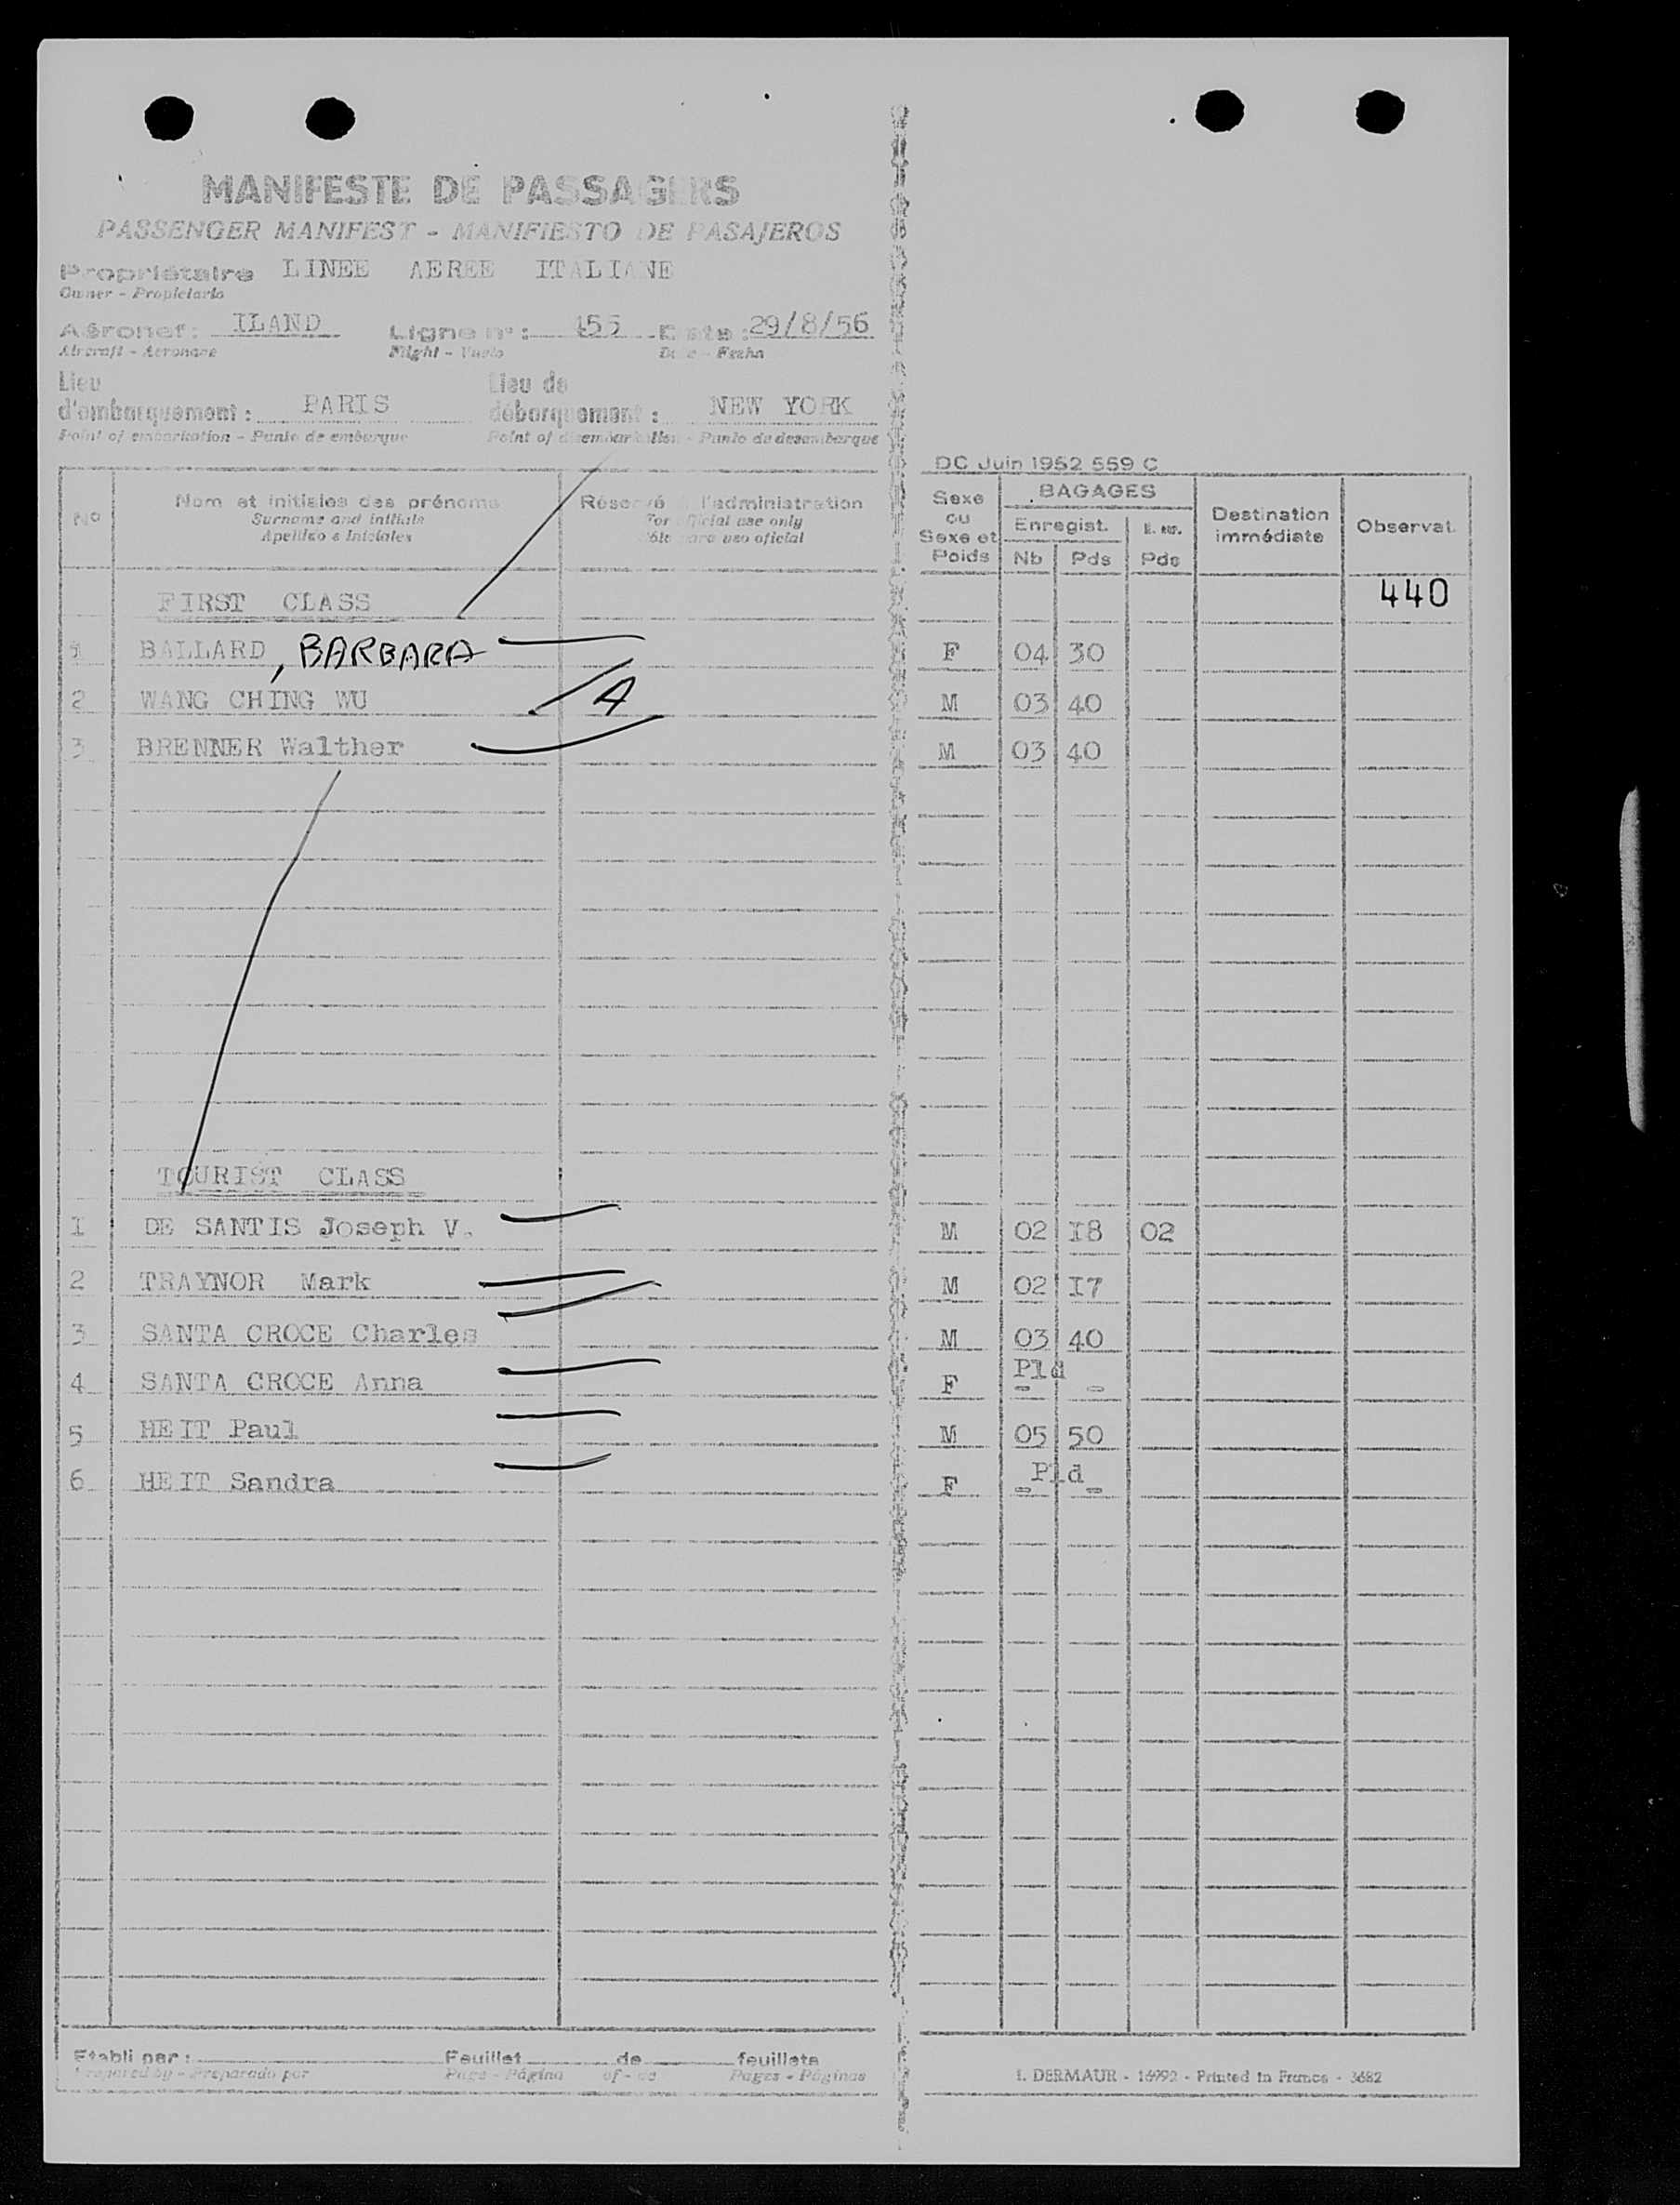 MANIFESTE DE PASSAGERS
PASSENGER MANIFEST - MANIFIESTO DE PASAJEROS
Propriétaire LINEE AEREE ITALIANE
Owner - Propietario
Aéronef : ILAND Ligne n° : 455 Date : 29/8/56
Aircraft - Aeronave Flight - Vuelo Date - Fecha
Lieu d'embarquement : PARIS Lieu de débarquement : NEW YORK
Point of embarkation - Punto de embarque Point of disembarkation - Punto de desembarque
DC Juin 1952 559 C
N° Nom et initiales des prénoms Réservé à l'administration Sexe ou Sexe et Poids BAGAGES Destination immédiate Observat.
Surname and initials For official use only Enregist.
Apellido e Iniciales Sólo para uso oficial Nb Pds Pds
440
FIRST CLASS
1 BALLARD, BARBARA F 04 30
2 WANG CHING WU M 03 40
3 BRENNER Walther M 03 40
TOURIST CLASS
I DE SANTIS Joseph V. M 02 I8 02
2 TRAYNOR Mark M 02 I7
3 SANTA CROCE Charles M 03 40
4 SANTA CROCE Anna F Pld - -
5 HEIT Paul M 05 50
6 HEIT Sandra F Pld - -
Etabli par : Feuillet de feuillets
Prepared by - Preparado por Page - Página of - de Pages - Páginas
I. DERMAUR - 16992 - Printed in France - 3682